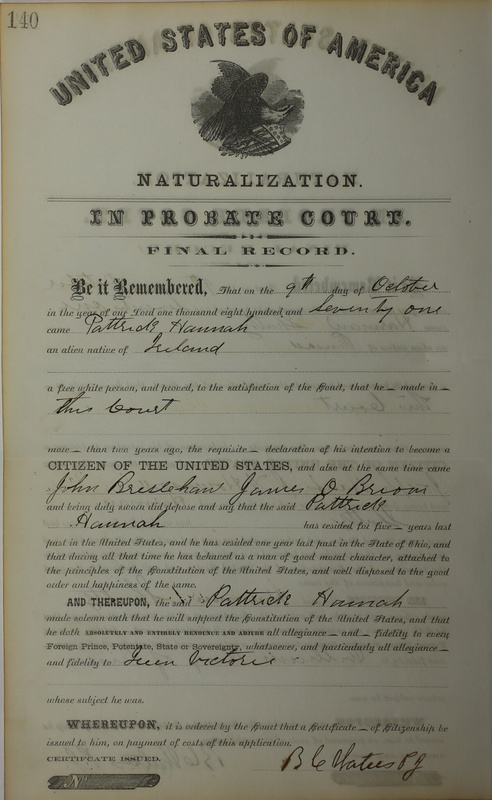 140
UNITED STATES OF AMERICA
NATURALIZATION.
IN PROBATE COURT.
FINAL RECORD.
Be it Remembered, That on the 9th day of October
in the year of our Lord one thousand eight hundred and Seventy one
came Pattrick Hannah
an alien native of Ireland
a free white person, and proved, to the satisfaction of the Court, that he — made in —
this Court
more — than two years ago, the requisite — declaration of his intention to become a
CITIZEN OF THE UNITED STATES, and also at the same time came
John Breslehan James O Brion
and being duly sworn did depose and say that the said Pattrick
Hannah has resided for five — years last
past in the United States, and he has resided one year last past in the State of Ohio, and
that during all that time he has behaved as a man of good moral character, attached to
the principles of the Constitution of the United States, and well disposed to the good
order and happiness of the same.
AND THEREUPON, the said Pattrick Hannah
made solemn oath that he will support the Constitution of the United States, and that
he doth ABSOLUTELY AND ENTIRELY RENOUNCE AND ABJURE all allegiance — and — fidelity to every
Foreign Prince, Potentate, State or Sovereignty, whatsoever, and particularly all allegiance —
and fidelity to Queen Victoria
whose subject he was.
WHEREUPON, it is ordered by the Court that a Certificate — of Citizenship be
issued to him, on payment of costs of this application.
CERTIFICATE ISSUED.
B C Waters PJ
No